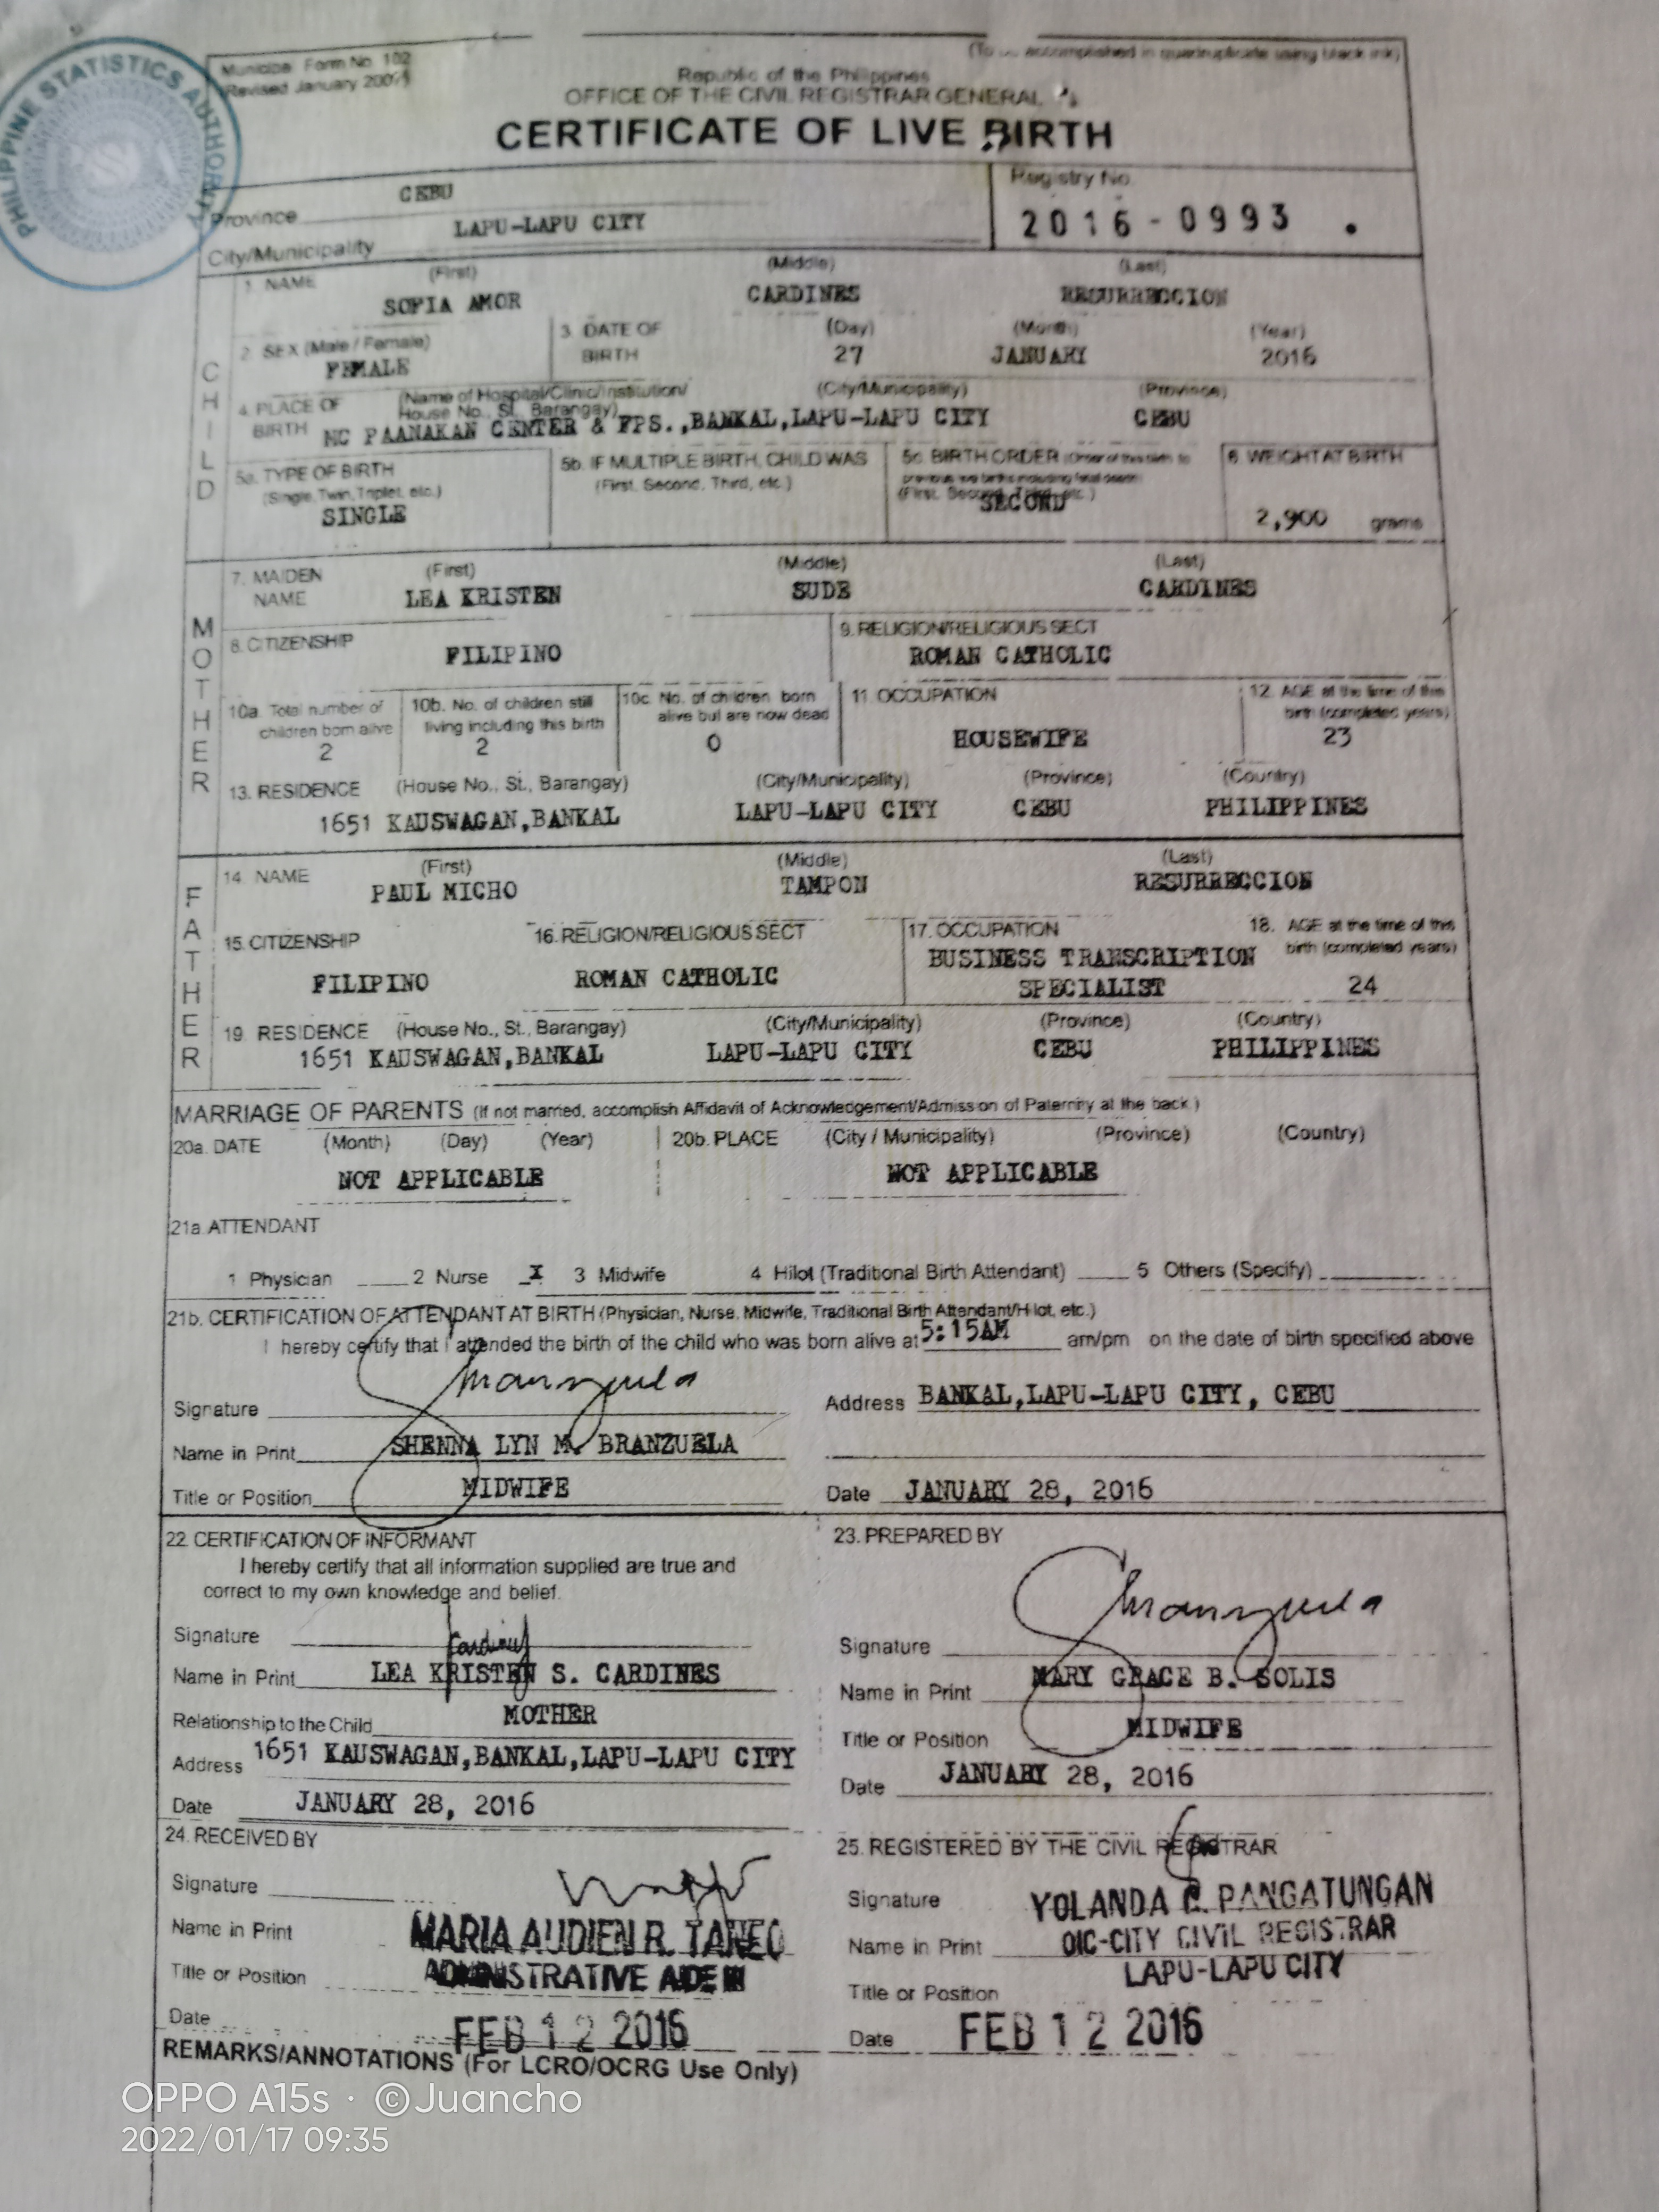 PHILIPPINE STATISTICS AUTHORITY
Municipal Form No. 102
Revised January 2007
(To accomplished in quadruplicate using black ink)
Republic of the Philippines
OFFICE OF THE CIVIL REGISTRAR GENERAL
CERTIFICATE OF LIVE BIRTH
Province CEBU
City/Municipality LAPU-LAPU CITY
Registry No.
2016-0993
CHILD
1. NAME (First) (Middle) (Last)
SOFIA AMOR CARDINES RESURRECCION
2. SEX (Male / Female) 3. DATE OF BIRTH (Day) (Month) (Year)
FEMALE 27 JANUARY 2016
4. PLACE OF BIRTH (Name of Hospital/Clinic/Institution/ House No., St., Barangay) (City/Municipality) (Province)
MC PAANAKAN CENTER & FPS.,BANKAL,LAPU-LAPU CITY CEBU
5a. TYPE OF BIRTH (Single, Twin, Triplet, etc.)
SINGLE
5b. IF MULTIPLE BIRTH, CHILD WAS (First, Second, Third, etc.)
5c. BIRTH ORDER (Order of this birth to previous live births including fetal death) (First, Second, Third, etc.)
SECOND
6. WEIGHT AT BIRTH
2,900 grams
MOTHER
7. MAIDEN NAME (First) (Middle) (Last)
LEA KRISTEN SUDE CARDINES
8. CITIZENSHIP
FILIPINO
9. RELIGION/RELIGIOUS SECT
ROMAN CATHOLIC
10a. Total number of children born alive
2
10b. No. of children still living including this birth
2
10c. No. of children born alive but are now dead
0
11. OCCUPATION
HOUSEWIFE
12. AGE at the time of this birth (completed years)
23
13. RESIDENCE (House No., St., Barangay) (City/Municipality) (Province) (Country)
1651 KAUSWAGAN,BANKAL LAPU-LAPU CITY CEBU PHILIPPINES
FATHER
14. NAME (First) (Middle) (Last)
PAUL MICHO TAMPON RESURRECCION
15. CITIZENSHIP
FILIPINO
16. RELIGION/RELIGIOUS SECT
ROMAN CATHOLIC
17. OCCUPATION
BUSINESS TRANSCRIPTION
SPECIALIST
18. AGE at the time of this birth (completed years)
24
19. RESIDENCE (House No., St., Barangay) (City/Municipality) (Province) (Country)
1651 KAUSWAGAN,BANKAL LAPU-LAPU CITY CEBU PHILIPPINES
MARRIAGE OF PARENTS (If not married, accomplish Affidavit of Acknowledgement/Admission of Paternity at the back.)
20a. DATE (Month) (Day) (Year) 20b. PLACE (City / Municipality) (Province) (Country)
NOT APPLICABLE NOT APPLICABLE
21a. ATTENDANT
1 Physician 2 Nurse X 3 Midwife 4 Hilot (Traditional Birth Attendant) 5 Others (Specify)
21b. CERTIFICATION OF ATTENDANT AT BIRTH (Physician, Nurse, Midwife, Traditional Birth Attendant/Hilot, etc.)
I hereby certify that I attended the birth of the child who was born alive at 5:15AM am/pm on the date of birth specified above
Signature
Name in Print SHENNA LYN M. BRANZUELA
Title or Position MIDWIFE
Address BANKAL,LAPU-LAPU CITY, CEBU
Date JANUARY 28, 2016
22. CERTIFICATION OF INFORMANT
I hereby certify that all information supplied are true and
correct to my own knowledge and belief.
Signature Cardines
Name in Print LEA KRISTEN S. CARDINES
Relationship to the Child MOTHER
Address 1651 KAUSWAGAN,BANKAL,LAPU-LAPU CITY
Date JANUARY 28, 2016
23. PREPARED BY
Signature
Name in Print MARY GRACE B. SOLIS
Title or Position MIDWIFE
Date JANUARY 28, 2016
24. RECEIVED BY
Signature
Name in Print MARIA AUDIEN R. TAREO
Title or Position ADMINISTRATIVE AIDE
Date FEB 12 2016
25. REGISTERED BY THE CIVIL REGISTRAR
Signature
Name in Print YOLANDA C. PANGATUNGAN
OIC-CITY CIVIL REGISTRAR
LAPU-LAPU CITY
Title or Position
Date FEB 12 2016
REMARKS/ANNOTATIONS (For LCRO/OCRG Use Only)
OPPO A15s · ©Juancho
2022/01/17 09:35